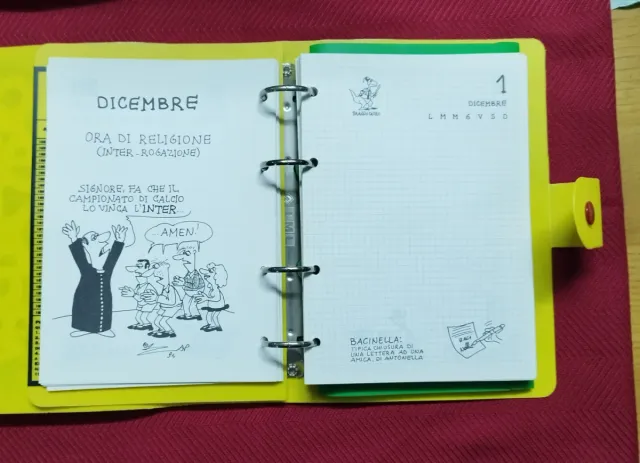 DICEMBRE
ORA DI RELIGIONE
(INTER-ROGAZIONE)
SIGNORE, FA CHE IL
CAMPIONATO DI CALCIO
LO VINCA L'INTER...
AMEN!
1
DICEMBRE
L M M G V S D
BACINELLA:
TIPICA CHIUSURA DI
UNA LETTERA AD UNA
AMICA DI ANTONELLA